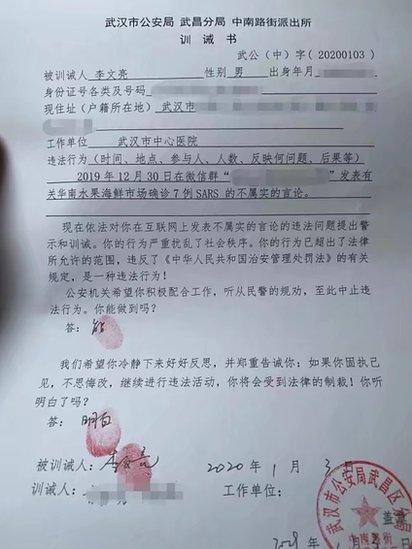 武汉市公安局 武昌分局 中南路街派出所
训 诫 书
武公（中）字（20200103）
被训诫人 李文亮 性别 男 出身年月
身份证号各类及号码
现住址（户籍所在地） 武汉市
工作单位 武汉市中心医院
违法行为（时间、地点、参与人、人数、反映何问题、后果等）
2019年12月30日在微信群“ ”发表有
关华南水果海鲜市场确诊7例SARS的不属实的言论。
现在依法对你在互联网上发表不属实的言论的违法问题提出警
示和训诫。你的行为严重扰乱了社会秩序。你的行为已超出了法律
所允许的范围，违反了《中华人民共和国治安管理处罚法》的有关
规定，是一种违法行为！
公安机关希望你积极配合工作，听从民警的规劝，至此中止违
法行为。你能做到吗？
答：能
我们希望你冷静下来好好反思，并郑重告诫你：如果你固执己
见，不思悔改，继续进行违法活动，你将会受到法律的制裁！你听
明白了吗？
答：明白
被训诫人：李文亮 2020年1月3日
训诫人： 工作单位：
武汉市公安局武昌区分局
中南路街
盖章
年 月